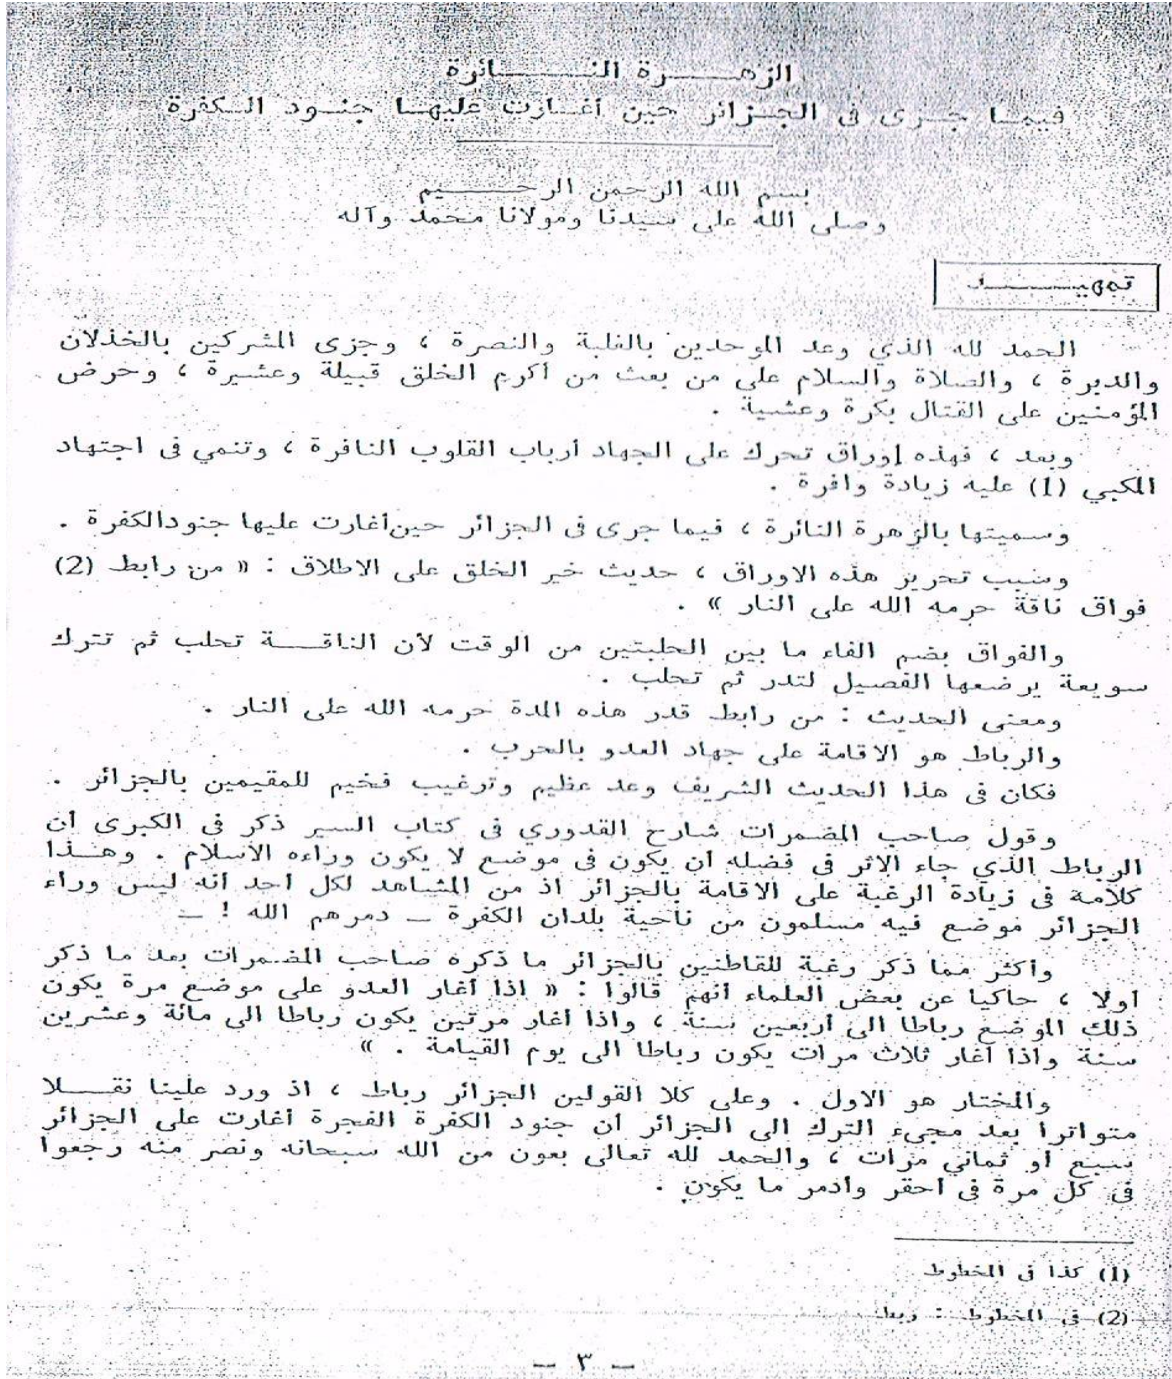 الزهرة النائرة
فيما جرى فى الجزائر حين أغارت عليها جنود الكفرة
بسم الله الرحمن الرحيم
وصلى الله على سيدنا ومولانا محمد وآله
تمهيد
الحمد لله الذي وعد الموحدين بالغلبة والنصرة ، وجزى المشركين بالخذلان
والدبرة ، والصلاة والسلام على من بعث من أكرم الخلق قبيلة وعشيرة ، وحرض
المؤمنين على القتال بكرة وعشية .
وبعد ، فهذه اوراق تحرك على الجهاد أرباب القلوب النافرة ، وتنمي فى اجتهاد
المكبي (1) عليه زيادة وافرة .
وسميتها بالزهرة النائرة ، فيما جرى فى الجزائر حين أغارت عليها جنود الكفرة .
وسبب تحرير هذه الاوراق ، حديث خير الخلق على الاطلاق : « من رابط (2)
فواق ناقة حرمه الله على النار » .
والفواق بضم الفاء ما بين الحلبتين من الوقت لأن الناقة تحلب ثم تترك
سويعة يرضعها الفصيل لتدر ثم تحلب .
ومعنى الحديث : من رابط قدر هذه المدة حرمه الله على النار .
والرباط هو الاقامة على جهاد العدو بالحرب .
فكان فى هذا الحديث الشريف وعد عظيم وترغيب فخيم للمقيمين بالجزائر .
وقول صاحب المضمرات شارح القدوري فى كتاب السير ذكر فى الكبرى ان
الرباط الذي جاء الاثر فى فضله ان يكون فى موضع لا يكون وراءه الاسلام . وهذا
كلامه فى زيادة الرغبة على الاقامة بالجزائر اذ من المشاهد لكل احد انه ليس وراء
الجزائر موضع فيه مسلمون من ناحية بلدان الكفرة ــ دمرهم الله ! ــ
واكثر مما ذكر رغبة للقاطنين بالجزائر ما ذكره صاحب المضمرات بعد ما ذكر
اولا ، حاكيا عن بعض العلماء انهم قالوا : « اذا أغار العدو على موضع مرة يكون
ذلك الموضع رباطا الى أربعين سنة ، واذا أغار مرتين يكون رباطا الى مائة وعشرين
سنة واذا أغار ثلاث مرات يكون رباطا الى يوم القيامة . »
والمختار هو الاول . وعلى كلا القولين الجزائر رباط ، اذ ورد علينا نقلا
متواترا بعد مجيء الترك الى الجزائر ان جنود الكفرة الفجرة أغارت على الجزائر
سبع او ثماني مرات ، والحمد لله تعالى بعون من الله سبحانه ونصر منه رجعوا
فى كل مرة فى احقر وادمر ما يكون .
(1) كذا فى المخطوط
(2) فى المخطوط : ربط
ــ ٣ ــ